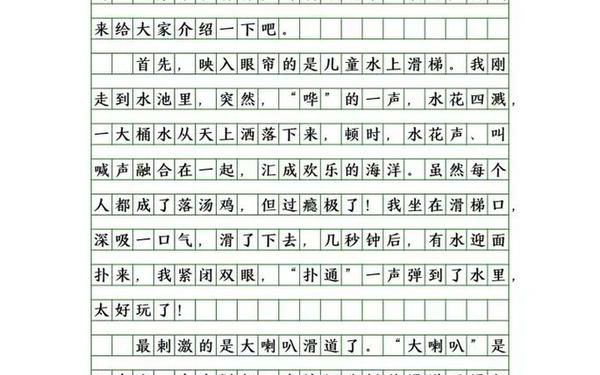 来给大家介绍一下吧。
首先，映入眼帘的是儿童水上滑梯。我刚
走到水池里，突然，“哗”的一声，水花四溅，
一大桶水从天上洒落下来，顿时，水花声、叫
喊声融合在一起，汇成欢乐的海洋。虽然每个
人都成了落汤鸡，但过瘾极了！我坐在滑梯口，
深吸一口气，滑了下去，几秒钟后，有水迎面
扑来，我紧闭双眼，“扑通”一声弹到了水里，
太好玩了！
最刺激的是大喇叭滑道了。“大喇叭”是